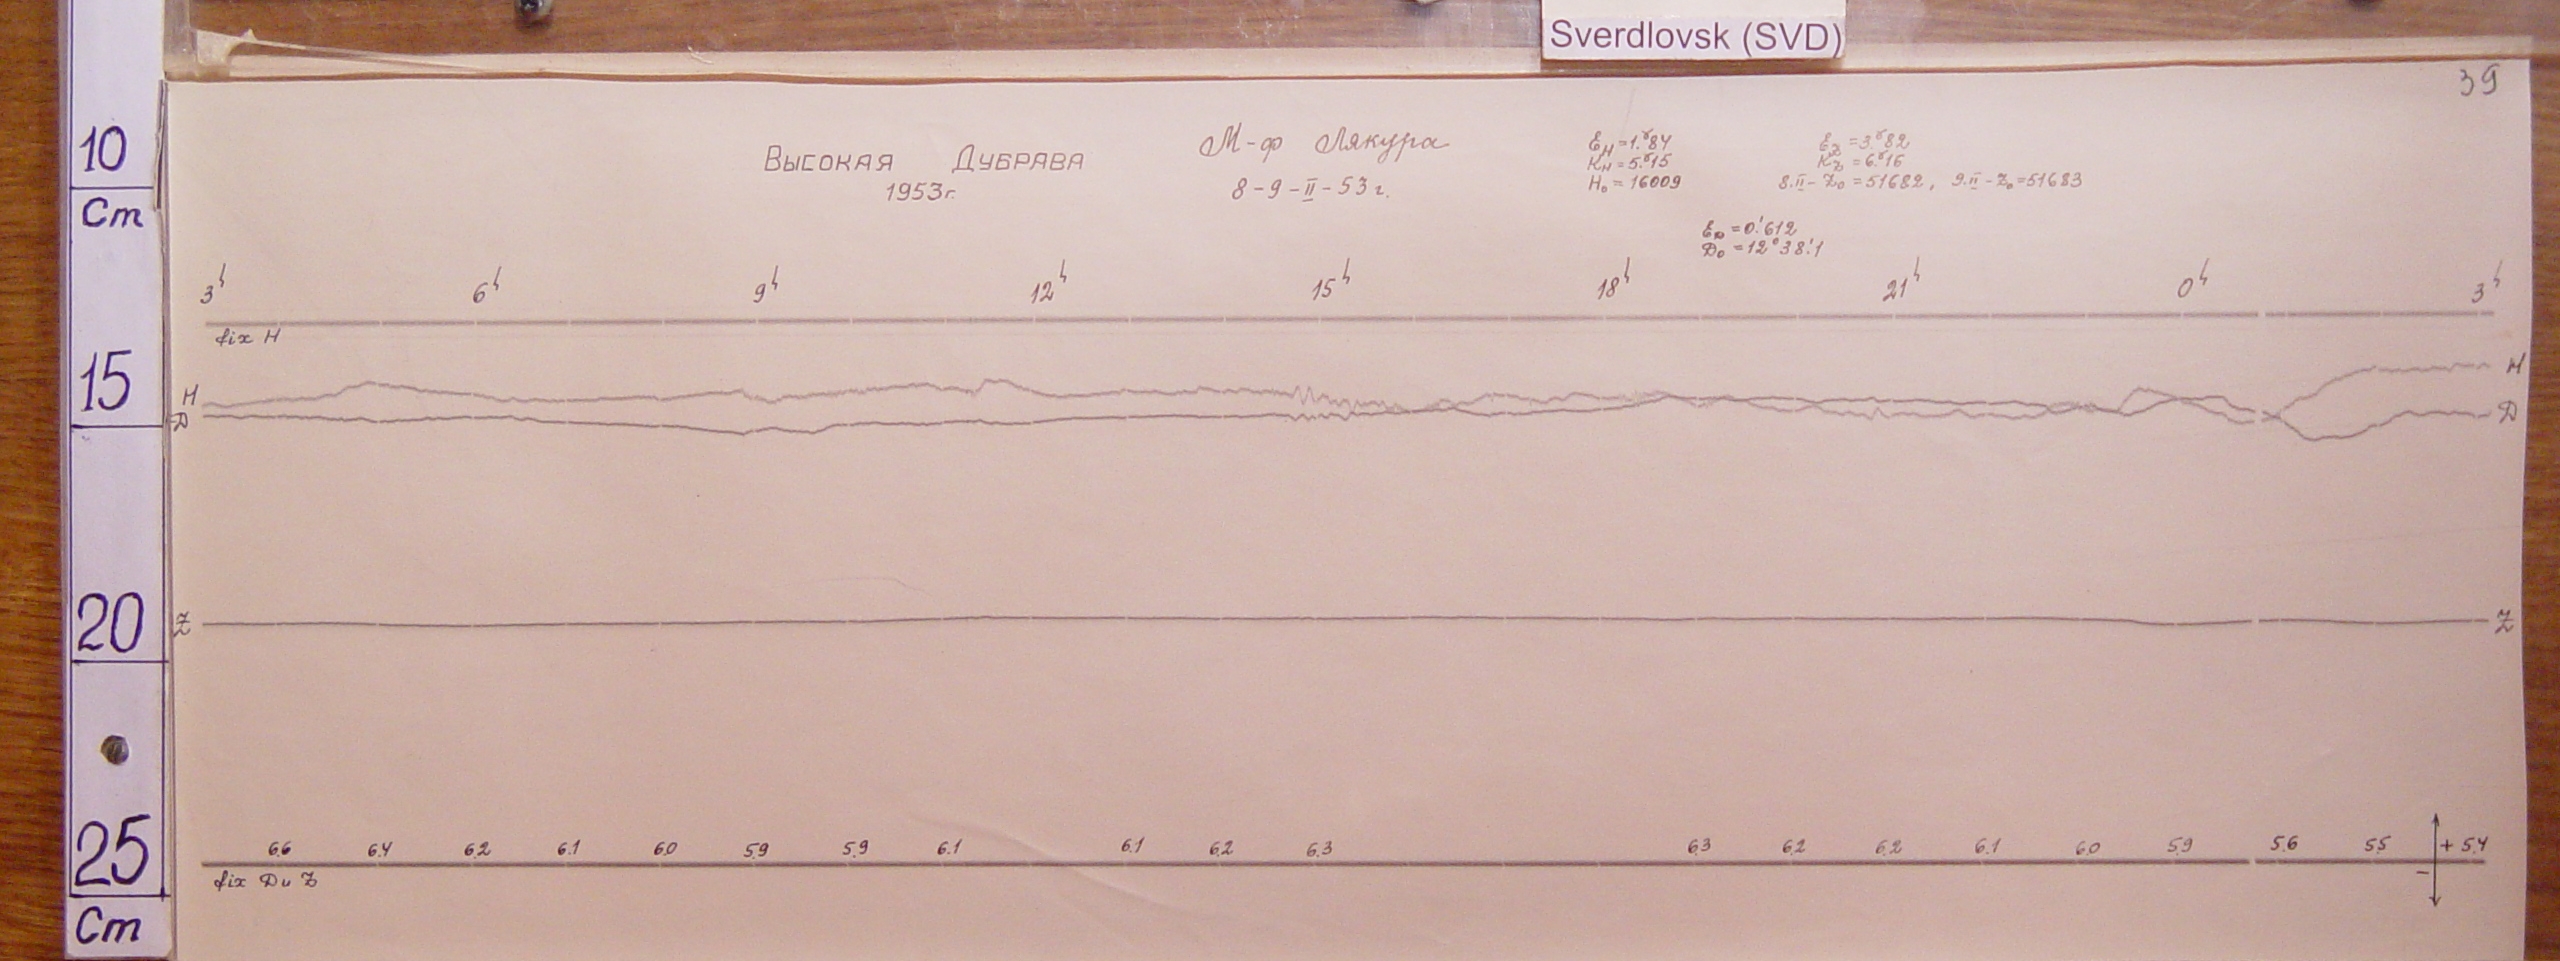 Sverdlovsk (SVD)
39
10
Cm
15
20
25
Cm
Высокая Дубрава
1953г.
М-ф Лякура
8-9-II-53 г.
E_H = 1.ᵞ84
K_H = 5.ᵞ15
H₀ = 16009
E_Z = 3.ᵞ82
K_Z = 6.ᵞ16
8.II - Z₀ = 51682, 9.II - Z₀ = 51683
E_D = 0.'612
D₀ = 12°38.'1
3ʰ 6ʰ 9ʰ 12ʰ 15ʰ 18ʰ 21ʰ 0ʰ 3ʰ
fix H
H H
D D
Z Z
6.6 6.4 6.2 6.1 6.0 5.9 5.9 6.1 6.1 6.2 6.3 6.3 6.2 6.2 6.1 6.0 5.9 5.6 5.5 + 5.4
−
fix D и Z